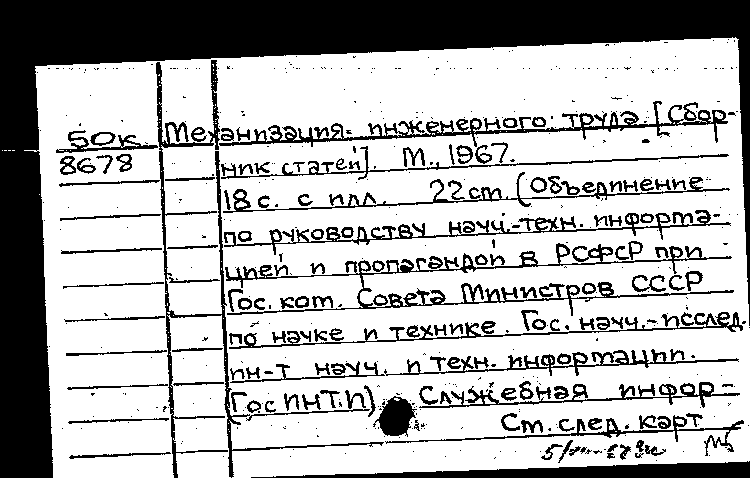 50к Механизация инженерного труда. [Сбор-
8678 ник статей]. М., 1967.
18 с. с илл. 22 см. (Объединение
по руководству науч.-техн. информа-
цией и пропагандой в РСФСР при
Гос. ком. Совета Министров СССР
по науке и технике. Гос. науч.-исслед.
ин-т науч. и техн. информации.
(ГосИНТИ) Служебная инфор-
См. след. карт